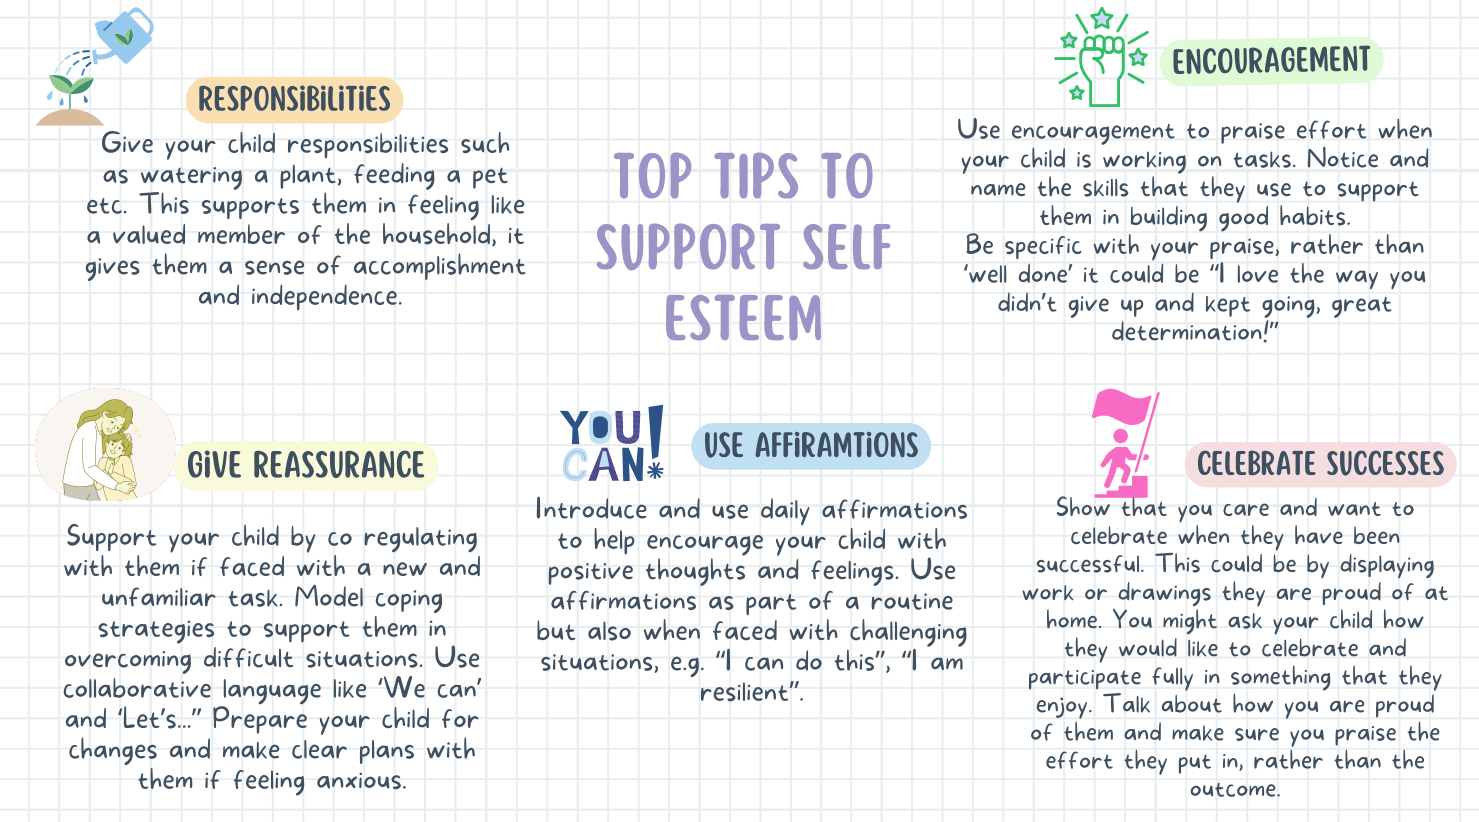 RESPONSiBiLiTiES
Give your child responsibilities such
as watering a plant, feeding a pet
etc. This supports them in feeling like
a valued member of the household, it
gives them a sense of accomplishment
and independence.
TOP TIPS TO
SUPPORT SELF
ESTEEM
ENCOURAGEMENT
Use encouragement to praise effort when
your child is working on tasks. Notice and
name the skills that they use to support
them in building good habits.
Be specific with your praise, rather than
‘well done’ it could be “I love the way you
didn’t give up and kept going, great
determination!”
GiVE REASSURANCE
Support your child by co regulating
with them if faced with a new and
unfamiliar task. Model coping
strategies to support them in
overcoming difficult situations. Use
collaborative language like ‘We can’
and ‘Let’s...” Prepare your child for
changes and make clear plans with
them if feeling anxious.
YOU
CAN!
USE AFFiRAMTiONS
Introduce and use daily affirmations
to help encourage your child with
positive thoughts and feelings. Use
affirmations as part of a routine
but also when faced with challenging
situations, e.g. “I can do this”, “I am
resilient”.
CELEBRATE SUCCESSES
Show that you care and want to
celebrate when they have been
successful. This could be by displaying
work or drawings they are proud of at
home. You might ask your child how
they would like to celebrate and
participate fully in something that they
enjoy. Talk about how you are proud
of them and make sure you praise the
effort they put in, rather than the
outcome.